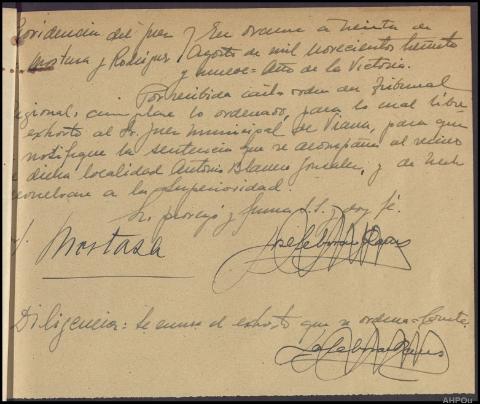 Providencia del Juez } En Orense a treinta de
Mostaza y Rodríguez } Agosto de mil novecientos treinta
y nueve = Año de la Victoria.
Por recibida carta orden del Tribunal
Regional, cumplase lo ordenado, para lo cual libre
exhorto al Sr. Juez Municipal de Viana, para que
notifique la sentencia que se acompaña al vecino
de dicha localidad Antonio Blanco González, y
devuélvase a la Superioridad.
Lo proveyó y firma S.S. doy fé.
Mostaza
Diligencia: Se envia el exhorto que se ordena = Conste.
AHPOu